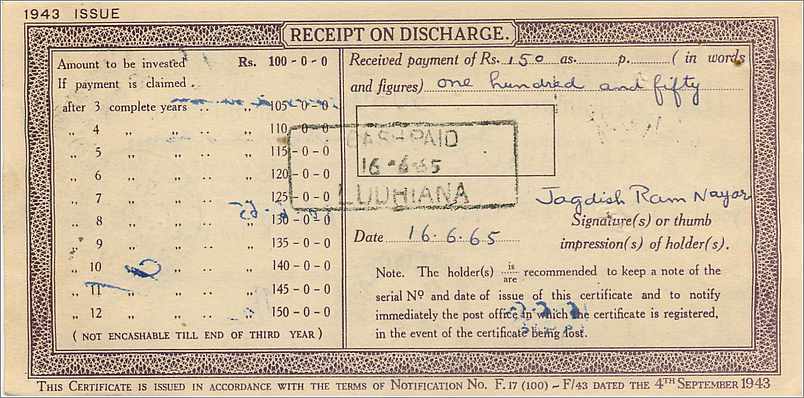 1943 ISSUE
RECEIPT ON DISCHARGE.
Amount to be invested Rs. 100 - 0 - 0
If payment is claimed.
after 3 complete years .. „ 105 - 0 - 0
„ 4 „ „ .. „ 110 - 0 - 0
„ 5 „ „ .. „ 115 - 0 - 0
„ 6 „ „ .. „ 120 - 0 - 0
„ 7 „ „ .. „ 125 - 0 - 0
„ 8 „ „ .. „ 130 - 0 - 0
„ 9 „ „ .. „ 135 - 0 - 0
„ 10 „ „ .. „ 140 - 0 - 0
„ 11 „ „ .. „ 145 - 0 - 0
„ 12 „ „ .. „ 150 - 0 - 0
( NOT ENCASHABLE TILL END OF THIRD YEAR )
Received payment of Rs. 150 as. p. ( in words
and figures) one hundred and fifty
CASH PAID
16-6-65
LUDHIANA
Jagdish Ram Nayar
Signature(s) or thumb
Date 16.6.65 impression(s) of holder(s).
Note. The holder(s) is/are recommended to keep a note of the
serial No and date of issue of this certificate and to notify
immediately the post office in which the certificate is registered,
in the event of the certificate being lost.
THIS CERTIFICATE IS ISSUED IN ACCORDANCE WITH THE TERMS OF NOTIFICATION NO. F. 17 (100) - F/43 DATED THE 4TH SEPTEMBER 1943